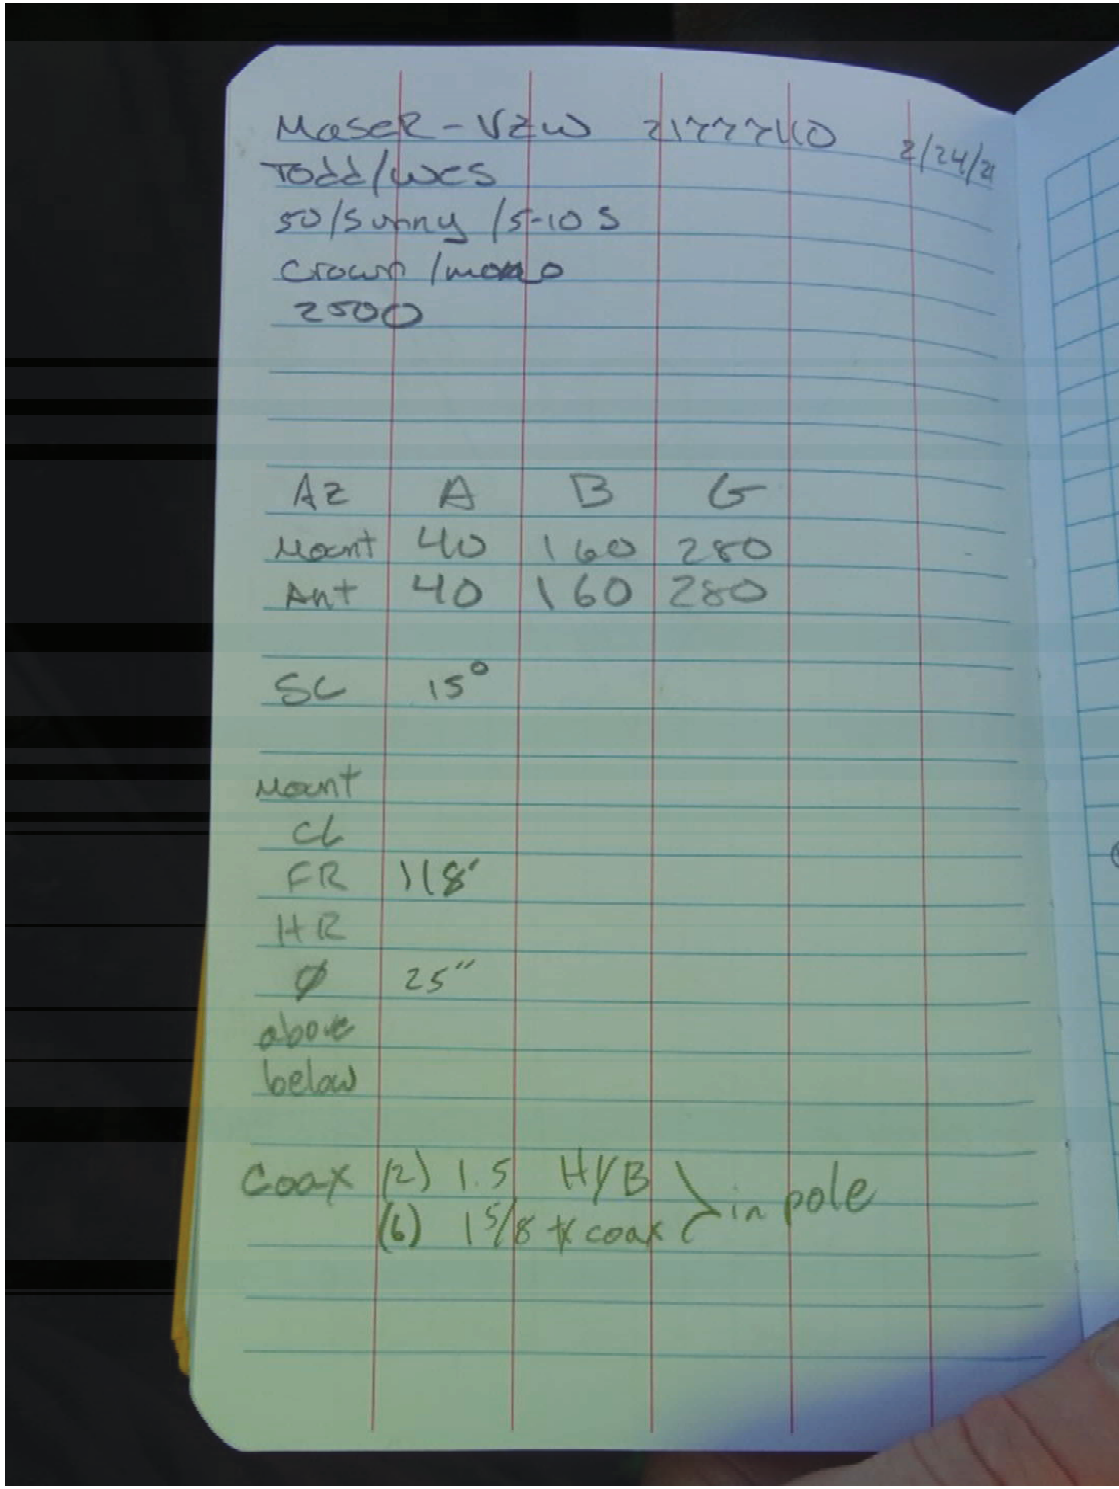 MaseR - VZW 21777410 2/24/21
Todd/Wes
50/Sunny/5-10 S
Crown/mono
2500
Az A B G
Mount 40 160 280
Ant 40 160 280
SC 15°
Mount
CL
FR 118'
HR
Ø 25"
above
below
Coax (2) 1.5 HYB
(6) 1 5/8 coax
in pole